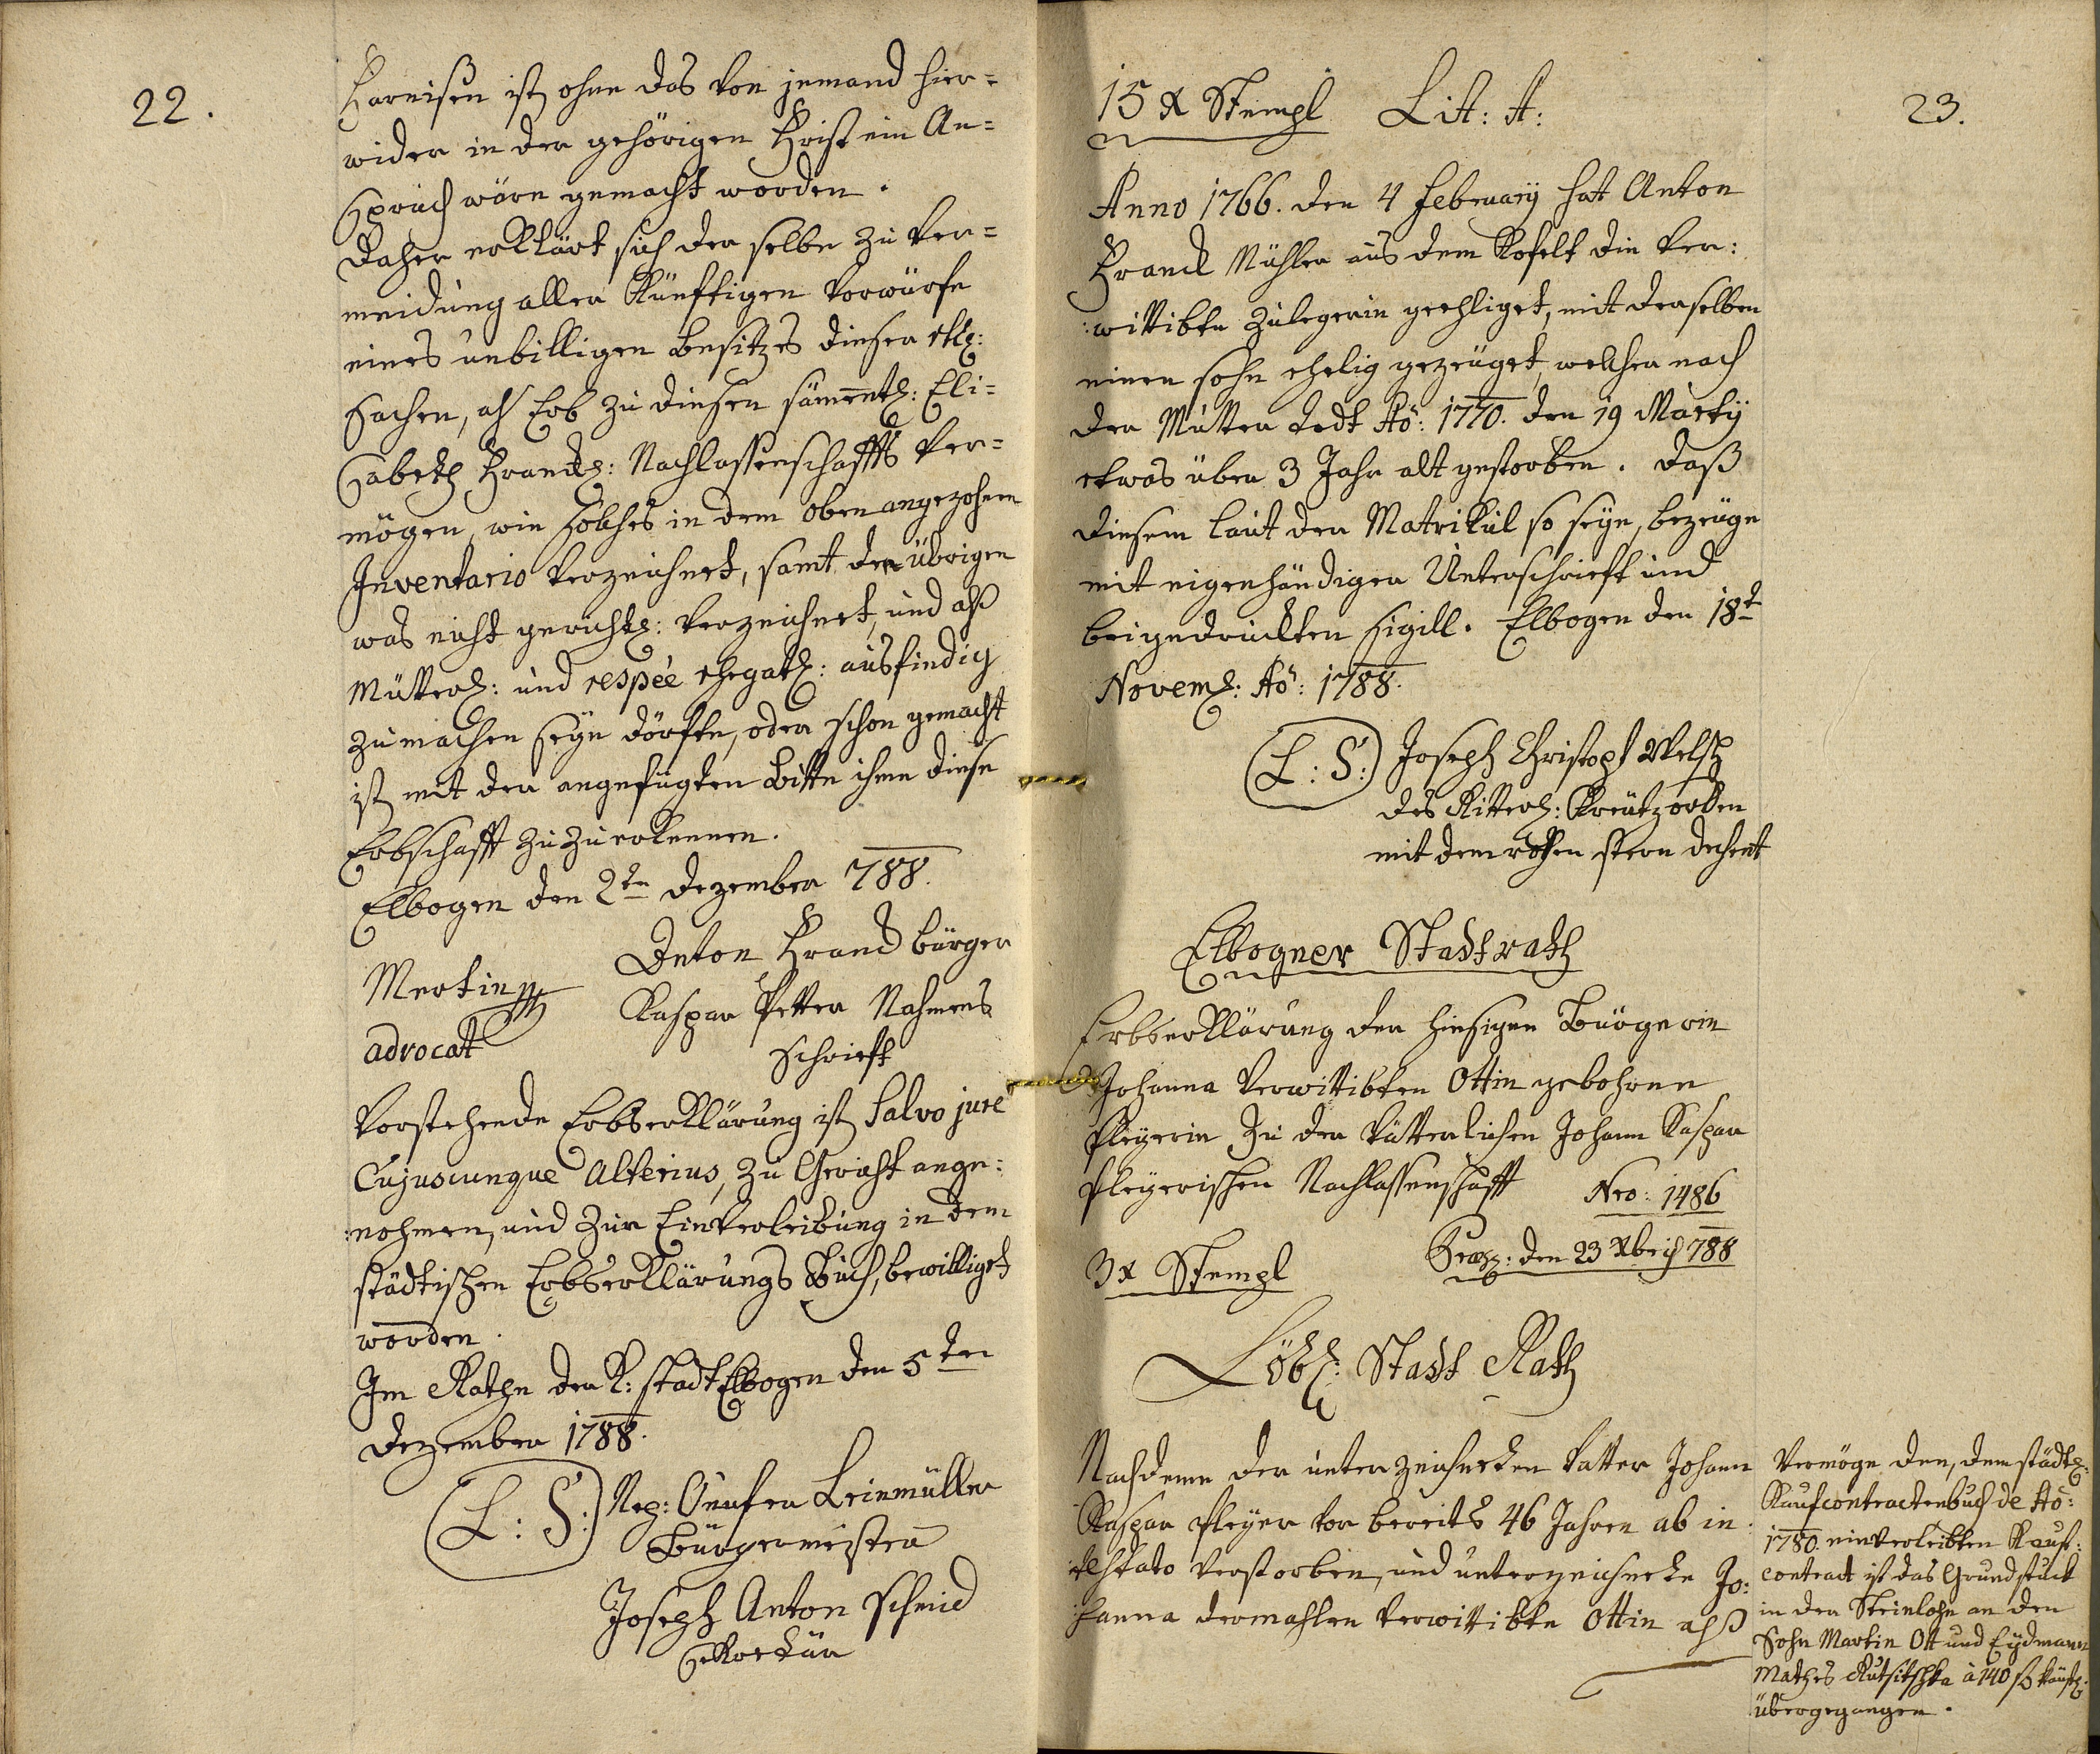 22.
ist, ohne das von jemand hier=
wider in der gehörigen Frist ein An=
spruch wäre gemacht worden.
Daher erklärt sich der selbe zu Ver=
meidung aller künftigen Vorwürfe
eines unbilligen Besitzes dieser
Sachen, als Erb zu diesen sämentl: Eli=
sabeth Frankl: Nachlassenschaffts Ver=
mögen, wie solches in dem oben angezohnen
Inventario verzeichnet, samt den übrigen
was nicht gerichtl: verzeichnet, und alß
Mütterl: und respèe ehegatl: ausfindig
zu machen seyn dörfte, oder schon gemacht
ist, mit der angefügten Bitte ihme diese
Erbschafft zu zu erkennen.
Elbogen den 2ten Dezember 788.
Mertin
advocat
Anton Franck bürger
Kaspar Petter Nahmens
Schrieft
Vorstehende Erbserklärung ist, Salvo jure
Cujuscunque Alterius, zu Gericht ange:
:nohmen, und zur Einverleibung in dem
städtischen Erbserklärungs Buch, bewilliget
worden.
Im Rathe der K: stadt Elbogen den 5ten
Dezember 1788.
(L: S:) Nep: Leinmüller
Bürgermeister
Joseph Anton Schmid
Sekretär
23.
15 x Stempl Lit: A:
Anno 1766. den 4 February hat Anton
Franck Mühler aus dem Kofelt die Ver:
:wittibte Zulegerin geehliget, mit derselben
einen sohn ehelig gezeuget, welcher nach
der Mutter Todt Aõ: 1770. den 19 Marty
etwas über 3 Jahr alt gestorben. Daß
diesem laut der Matrikul so seye, bezeuge
mit eigenhändiger Unterschrieft und
beigedruckten Sigill. Elbogen den 18t
Novemb: Aõ: 1788.
(L: S:) Joseph Christoph Welsch
des Ritterl: Kreutzorden
mit dem rothen stern dechent
Elbogner Stadtrath
Erbserklärung der hiesigen Bürgerin
Johanna Verwittibten Ottin gebohrne
Pleyerin zu der Vätterlichen Johann Kaspar
Pleyerischen Nachlassenschafft Nro: 1486
Praes: den 23 Xbris 788
3x Stempl
Löbl: Stadt Rath
Nachdeme der unterzeichneten Vatter Johann
Kaspar Pleyer vor bereits 46 Jahren ab in:
:testato verstorben, und unterzeichnete Jo:
:hanna dermahlen Verwittibte Ottin alß
Vermöge den, dem städtl:
Kaufcontractenbuch de Aõ:
1780. einverleibten Kauf:
contract ist das Grundstuck
in der Steinlohe an den
Sohn Martin Ott und Eydmann
Mathes Rutsitschka à 140 f käufl:
übergegangen.